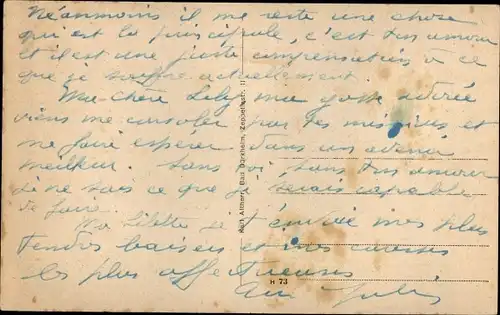 Néanmoins il me reste une chose
qui est la principale, c'est ton amour
et il est une juste compensation à ce
que je souffre actuellement.
Ma chère Lily ma gosse adorée
viens me consoler par tes missives et
me faire espérer dans un avenir
meilleur. Sans toi, sans ton amour
je ne sais ce que je serais capable
de faire.
Ma Lilette je t'envoie mes plus
tendres baisers et mes caresses
les plus affectueuses
Karl Altherr, Bad Dürkheim, Zeppelinstr. 11
H 73